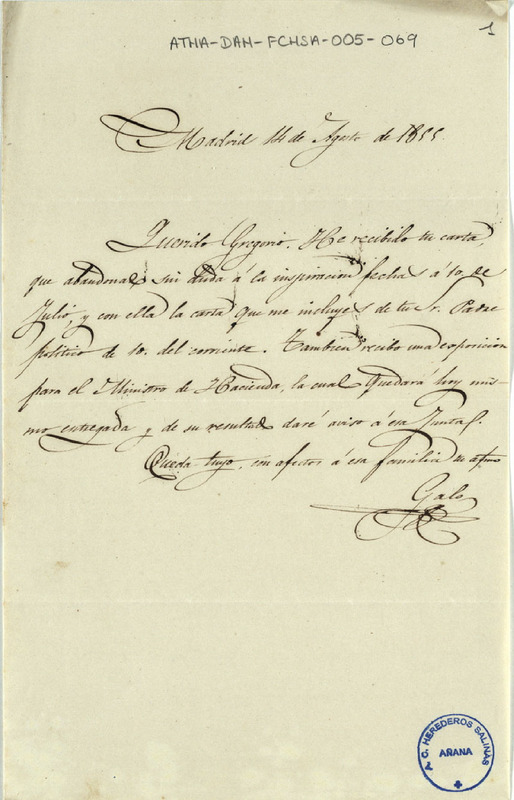 ATHA-DAH-FCHSA-005-069
1
Madrid 14 de Agosto de 1855.
Querido Gregorio. He recibido tu carta,
que abandonas sin duda á la inspiracion fechas á 10 de
Julio, y con ella la carta que me incluyes de tu Sr. Padre
politico de 10. del corriente. Tambien recibo una exposicion
para el Ministro de Hacienda, la cual quedará hoy mis-
mo entregada y de su resultado daré aviso á esa Junta.
Queda tuyo, con afectos á esa familia tu afmo
Galo
C. HEREDEROS SALINAS
AÑANA